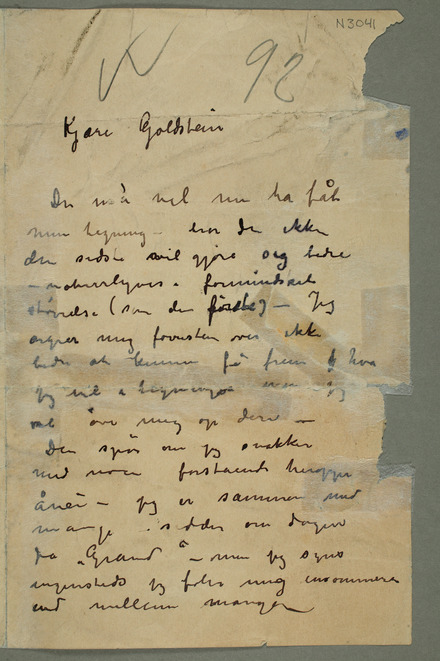 N3041
92
Kjære Goldstein
Du må vel nu ha fåt
min tegning – tror du ikke
den sidste vil gjøre sig bedre
– naturligvis i formindsket
størrelse (som den første) – Jeg
ærgrer mig foresten over ikke
bedre at kunne få frem hva
jeg vil i tegninger men jeg
vel øve mig op deri –
Du spør om jeg snakker
med noen forstående heroppe
ånei – jeg er sammen med
mange sidder om dagen
da „Grand" – men jeg synes
ingensteds jeg føler mig ensommere
end mellem mange